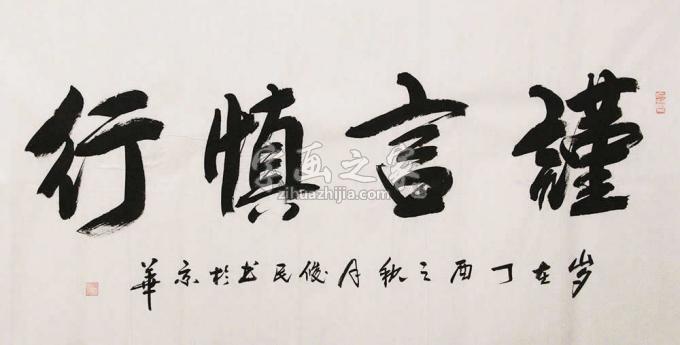 謹言慎行
岁在丁酉之秋月俊民书於京華
字画之家
zihuazhijia.com